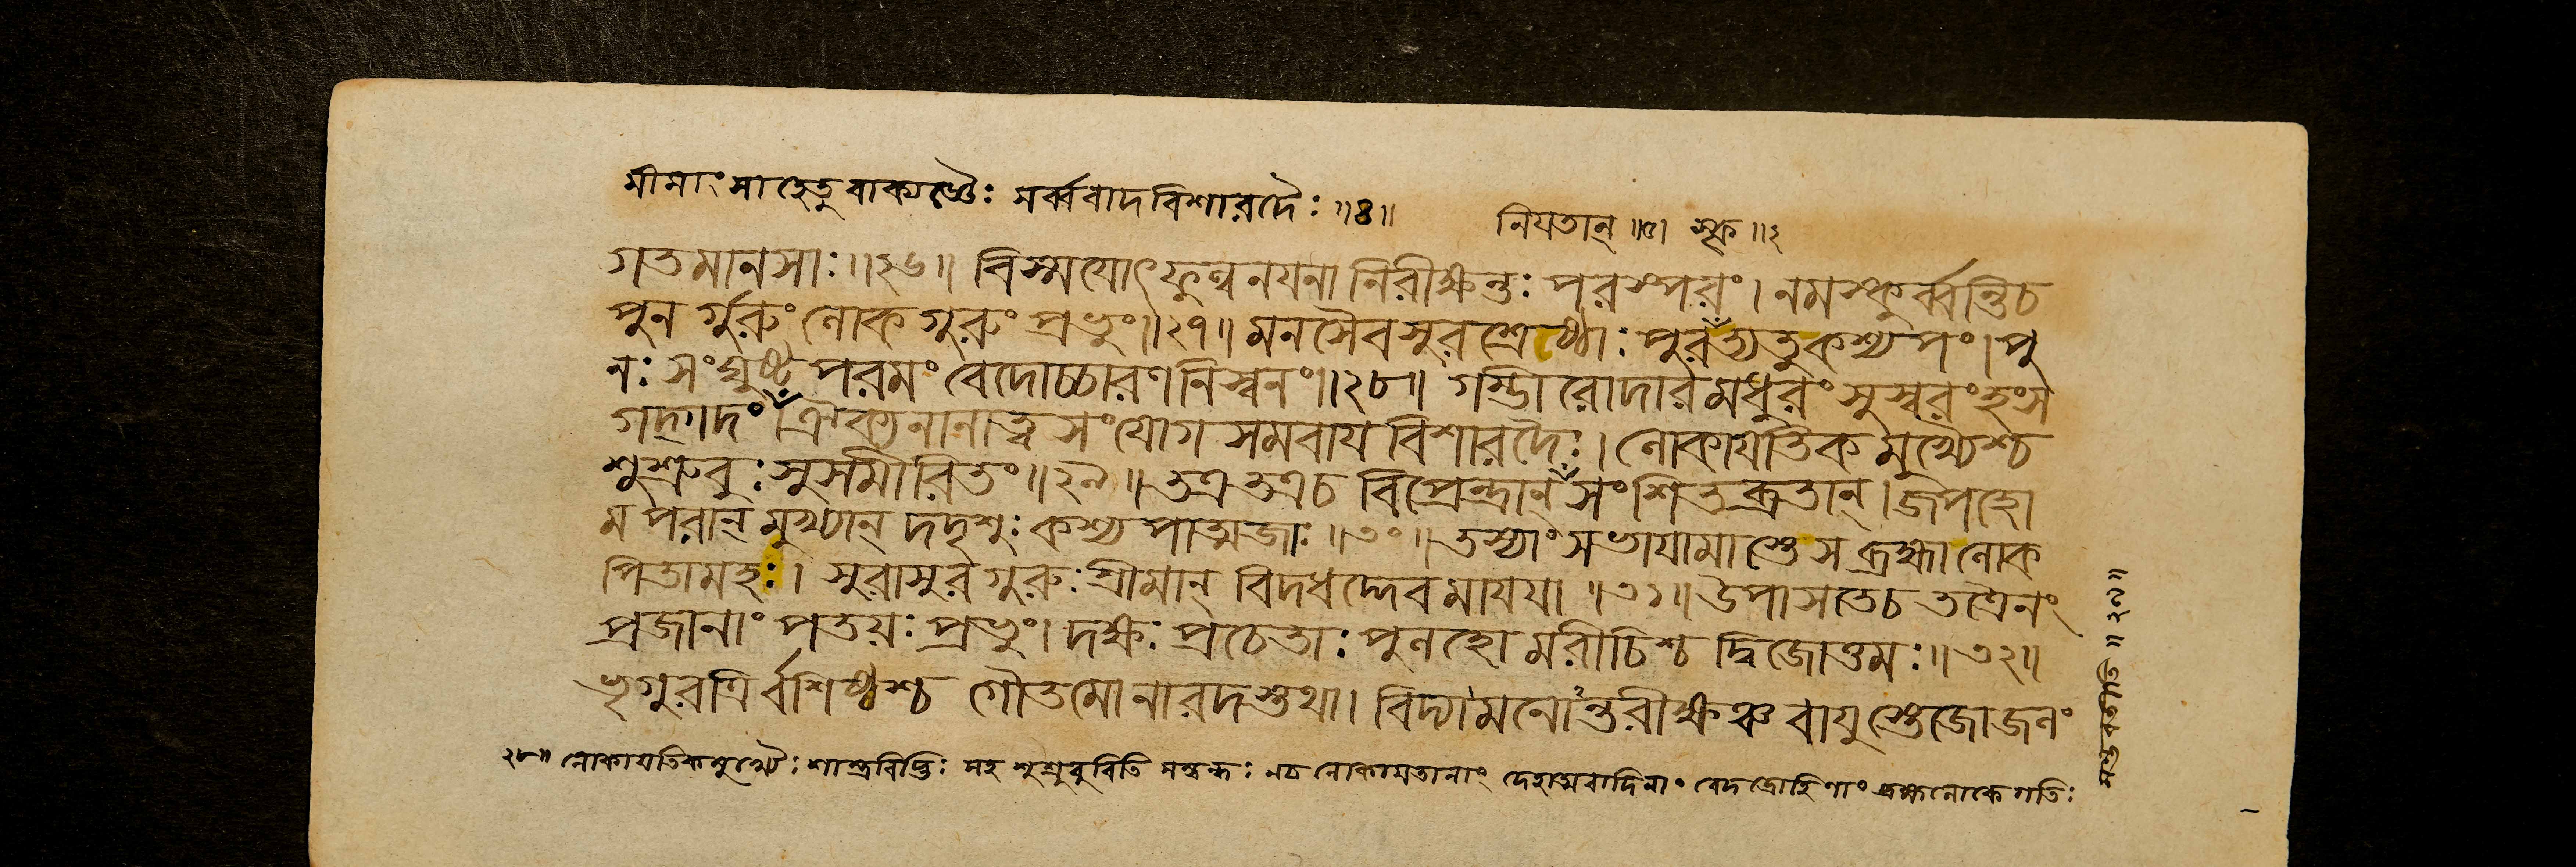 মীমাংসাহেতুবাক্যজ্ঞৈঃ সর্ব্ববাদবিশারদৈঃ ॥৪॥
নিযতান্ ॥৫॥ স্ক ॥২
গতমানসাঃ॥২৬॥ বিস্মযোৎফুল্লনযনা নিরীক্ষন্তঃ পরস্পরং। নমস্কুর্ব্বন্তিচ
পুনর্গুরুং লোকগুরুং প্রভুং॥২৭॥ মনসৈবসুরশ্রেষ্ঠাঃ পুরস্কৃত্যতুকশ্যপং। পু
নঃ সংঘুষ্ট পরমং বেদোচ্চারণনিস্বনং॥২৮॥ গম্ভীরোদারমধুরং সুস্বরংহংস
গদ্গদং ঐক্যনানাত্বসংযোগসমবাযবিশারদৈঃ। লোকাযতিকমুখ্যৈশ্চ
শুশ্রুবুঃসুসমীরিতং॥২৯॥ তত্রতত্রচ বিপ্রেন্দ্রান্ সংশিতব্রতান্। জপহো
মপরান্ মুখ্যান্ দদৃশুঃ কশ্যপাত্মজাঃ॥৩০॥ তস্যাং সভাযামাস্তেস ব্রহ্মালোক
পিতামহঃ। সুরাসুরগুরুঃ শ্রীমান্ বিদধদ্দেবমাযযা ॥৩১॥ উপাসতেচ তত্রৈনং
প্রজানাং পতযঃ প্রভুং। দক্ষঃ প্রচেতাঃ পুলহো মরীচিশ্চ দ্বিজোত্তমঃ॥৩২॥
ভৃগুরত্রির্বশিষ্ঠশ্চ গৌতমোনারদস্তথা। বিদ্যামনোন্তরীক্ষঞ্চ বাযুস্তেজোজলং
২৮॥ লোকাযতিকমুখ্যৈঃ শাস্ত্রবিদ্ভিঃ সহ শুশ্রুবুরিতি সম্বন্ধঃ নচ লোকাযতানাং দেহাত্মবাদিনাং বেদদ্রোহিণাং ব্রহ্মলোকে গতিঃ